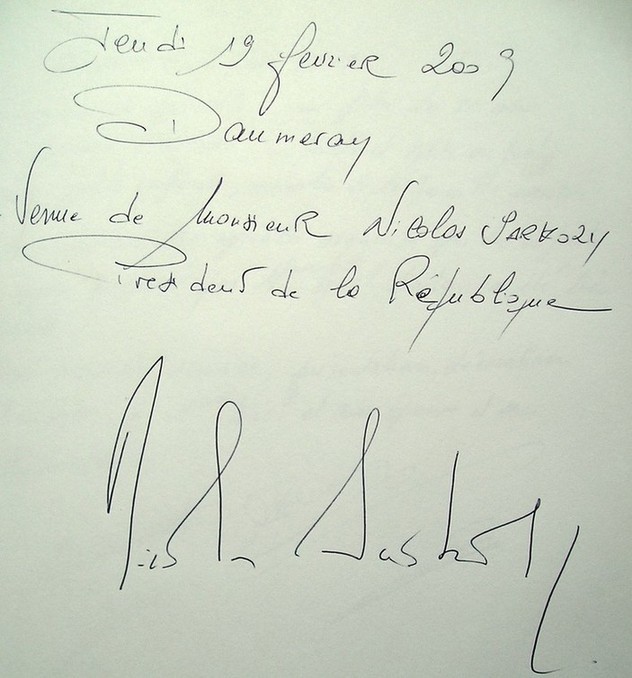 Jeudi 19 février 2009
Daumeray
Venue de Monsieur Nicolas SARKOZY
Président de la République
Nicolas Sarkozy